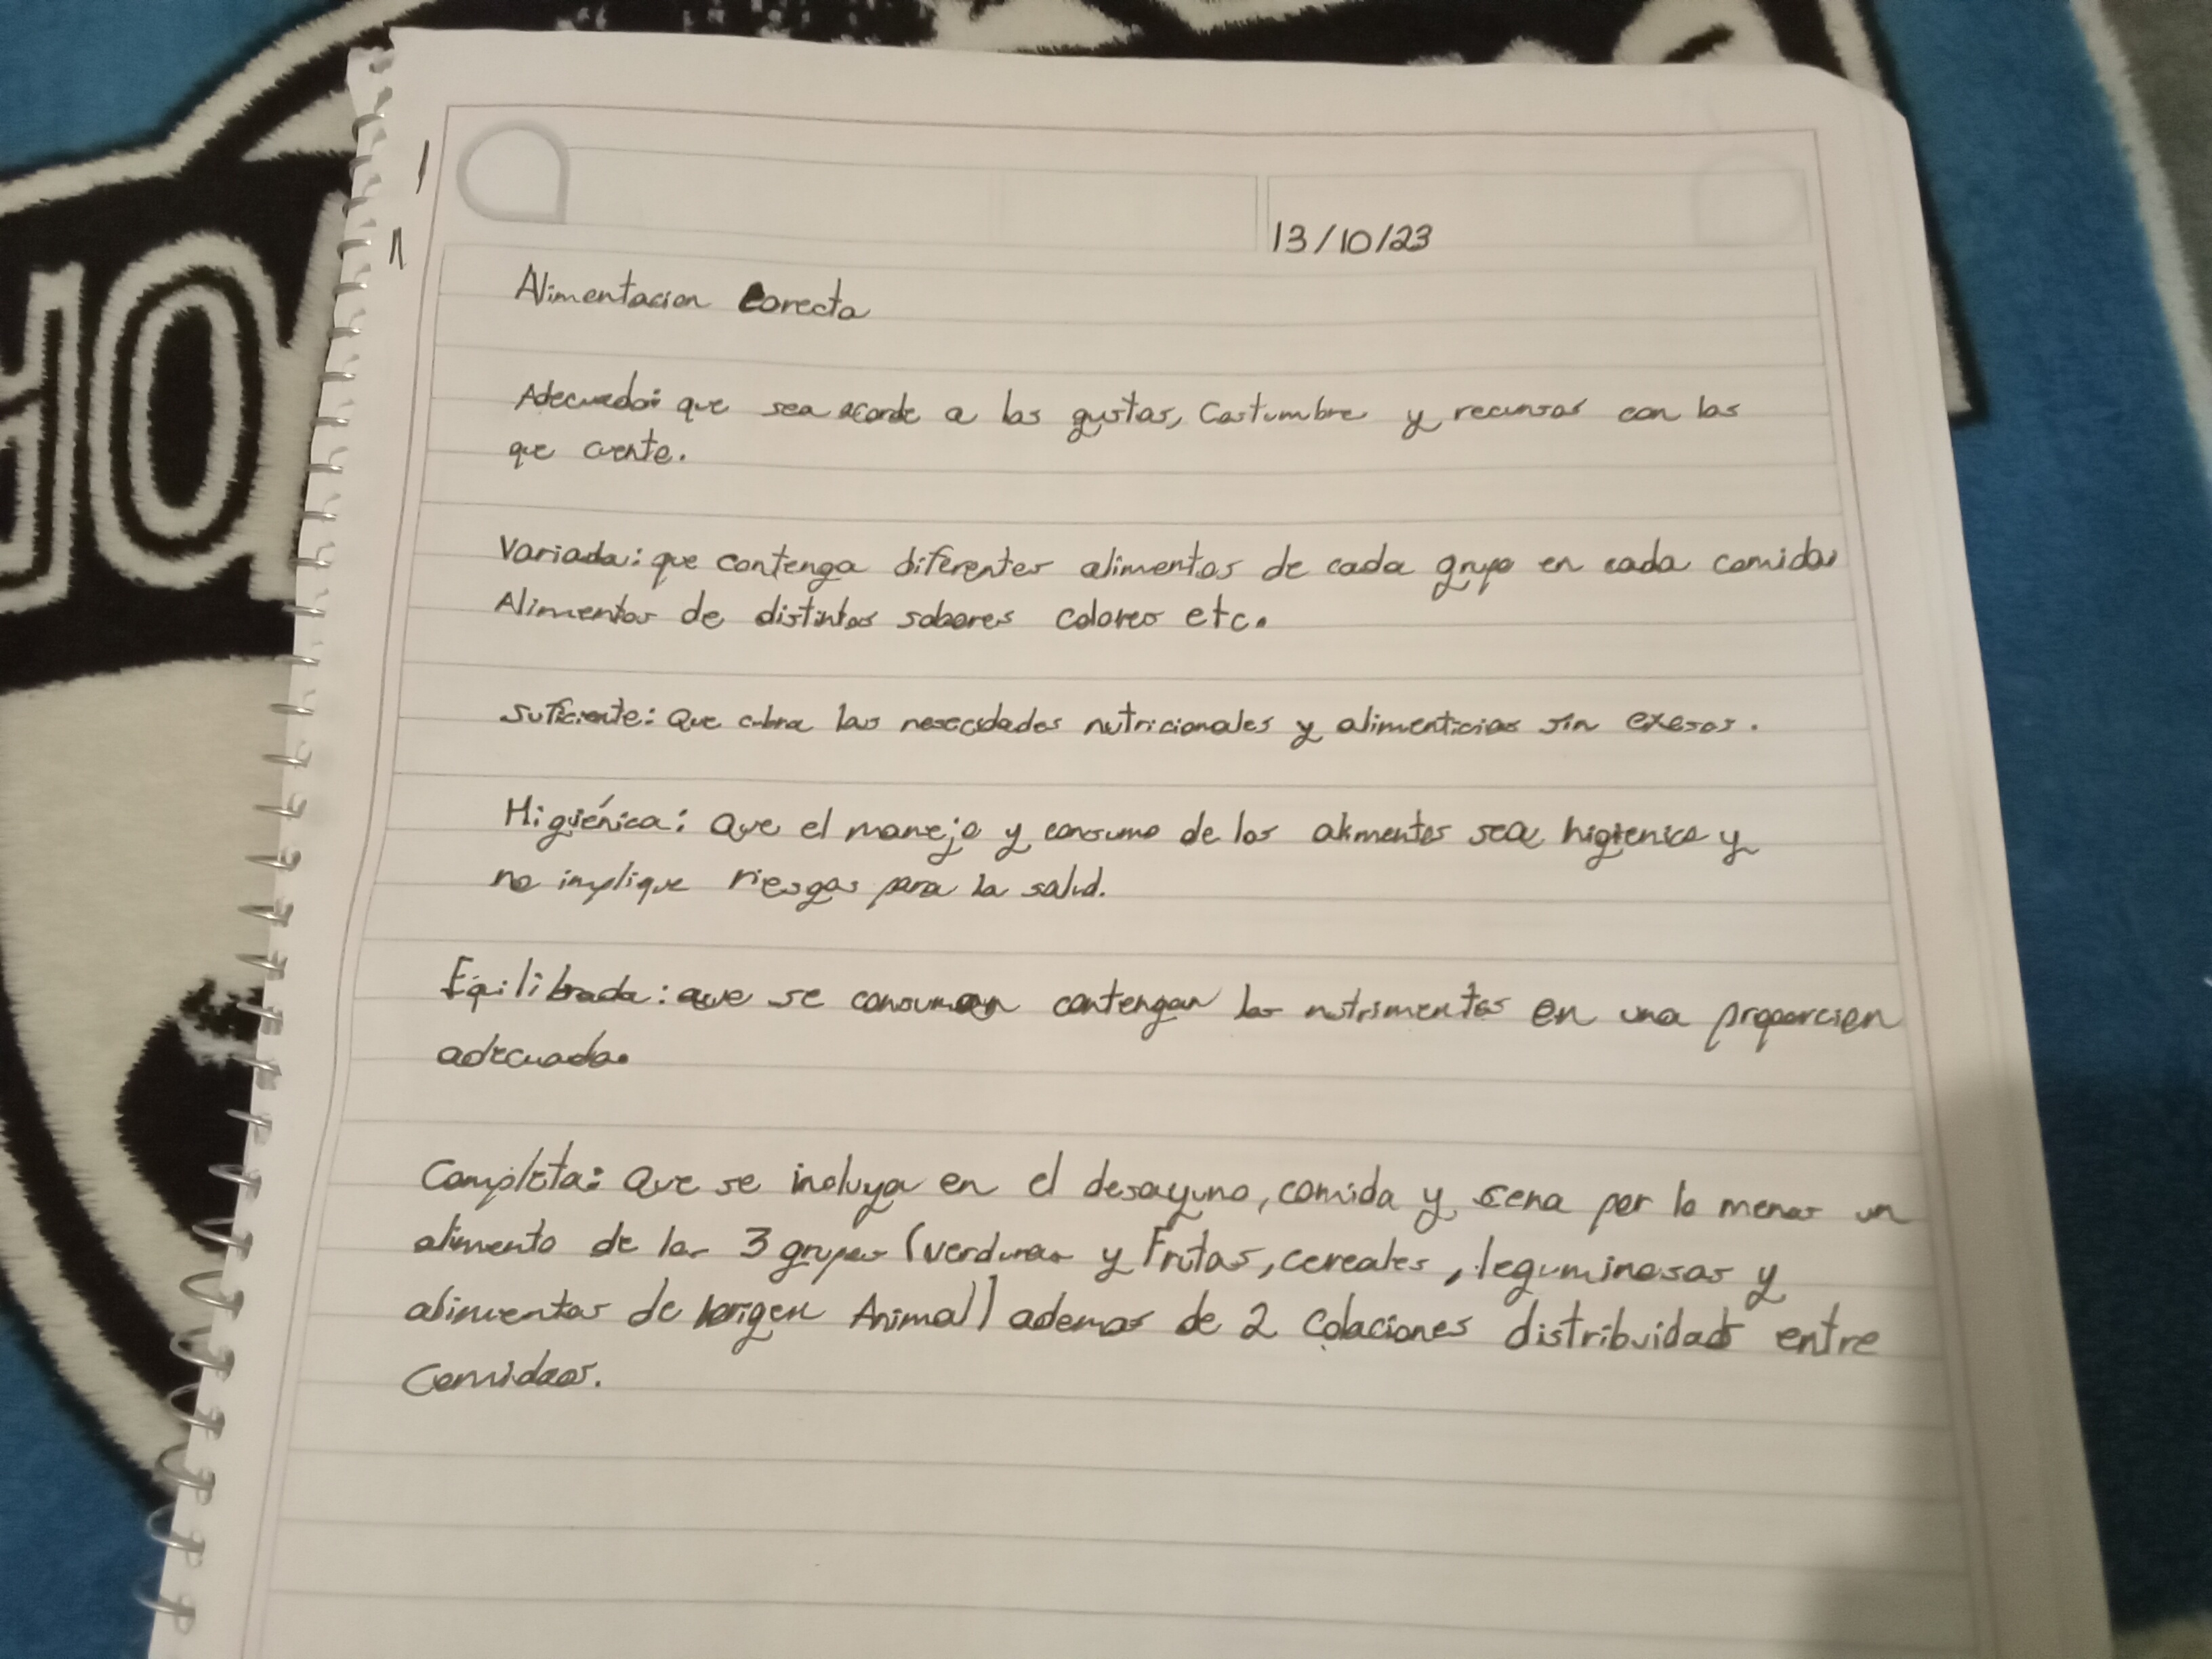 13/10/23
Alimentacion corecta
Adecuada: que sea acorde a los gustos, Costumbre y recursos con los
que cuente.
Variada: que contenga diferentes alimentos de cada grupo en cada comida.
Alimentos de distintos sabores colores etc.
Suficiente: Que cubra las nesecidades nutricionales y alimenticias sin exesos.
Higiénica: Que el manejo y consumo de los alimentos sea higienico y
no implique riesgos para la salud.
Equilibrada: que se consuman contengan los nutrimentos en una proporcion
adecuada.
Completa: Que se incluya en el desayuno, comida y cena por lo menos un
alimento de los 3 grupos (verduras y Frutas, cereales, leguminosas y
alimentos de origen Animal) ademas de 2 Colaciones distribuidas entre
Comidas.